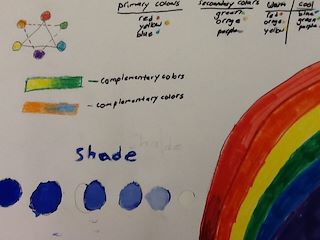 primary colours secondary colors warm cool
red green red blue
yellow green
blue purple yellow purple
complementary colors
complementary colors
shade
Shade